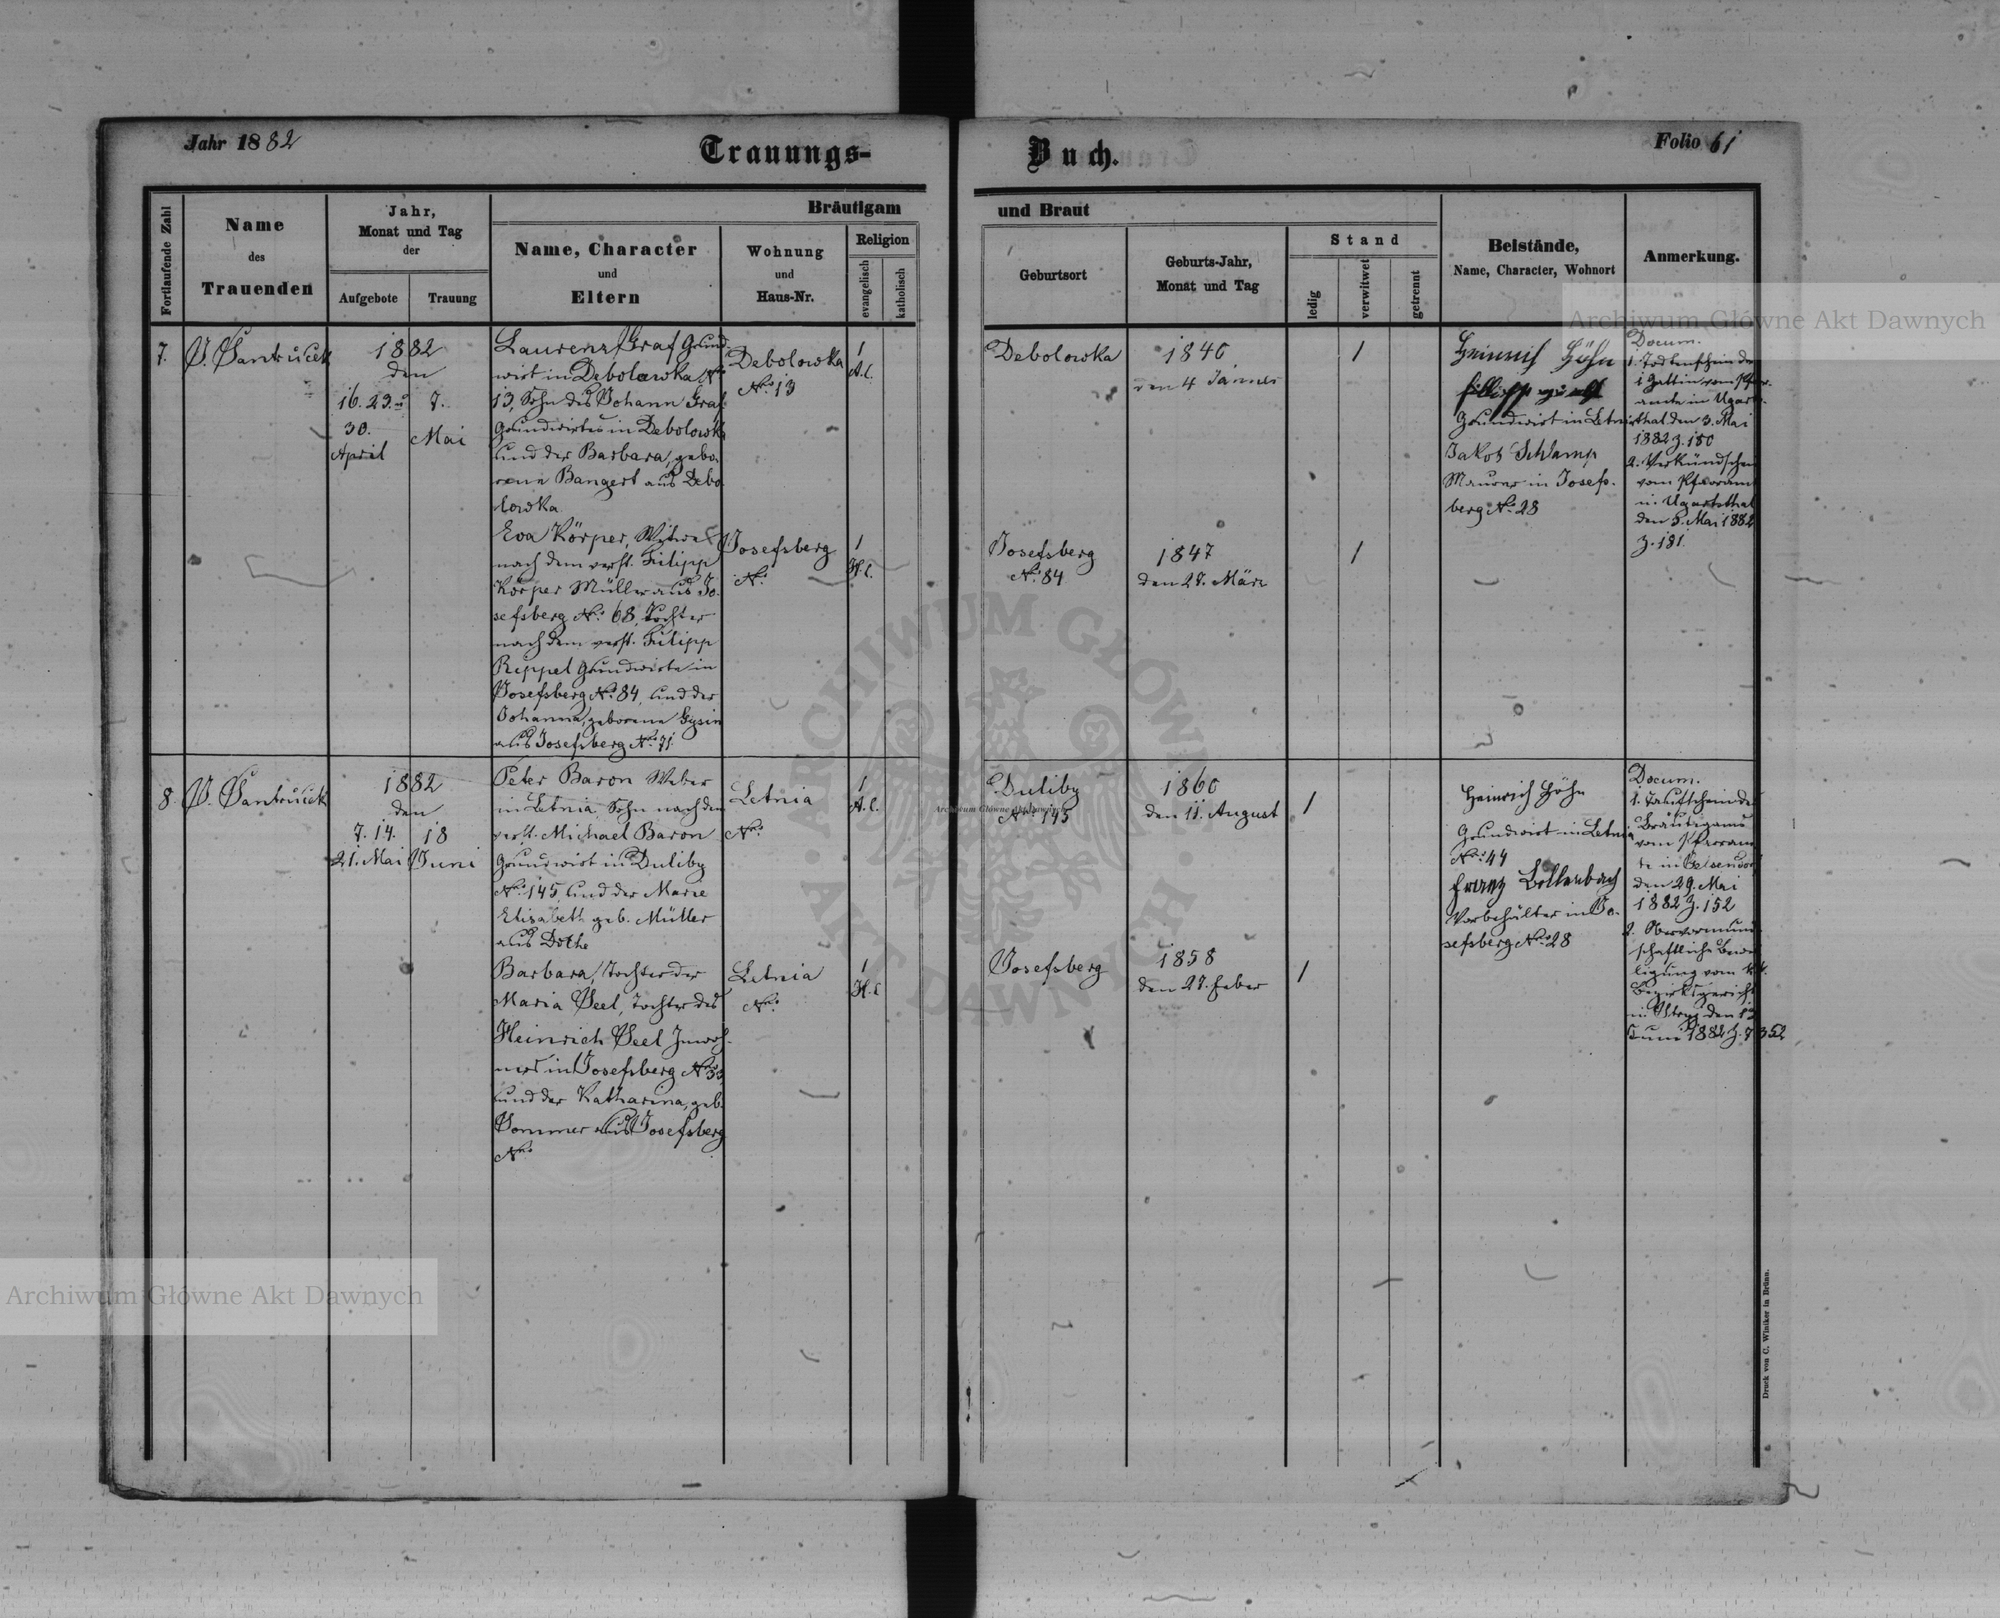 Jahr 1882
Trauungs-
Buch.
Folio 61
Fortlaufende Zahl
Name
des
Trauenden
Jahr,
Monat und Tag
der
Aufgebote
Trauung
Bräutigam
Name, Character
und
Eltern
Wohnung
und
Haus-Nr.
Religion
evangelisch
katholisch
und Braut
Geburtsort
Geburts-Jahr,
Monat und Tag
Stand
ledig
verwitwet
getrennt
Beistände,
Name, Character, Wohnort
Anmerkung.
7.
1882
den
16. 23. u
30.
April
7.
Mai
Laurenz Graf Grund
wirt in Debolowka No
13, Sohn des Johann Graf
Grundwirtes in Debolowka
und der Barbara, gebo-
rene Bangert aus Debo
lowka
Eva Körper, Witwe
nach dem verst. Filipp
Körper Müller aus Jo-
sefsberg No 68, Tochter
nach dem verst. Filipp
Reppel Grundwirte in
Josefsberg No 84, und der
Johanna, geborene Gysin
aus Josefsberg No 71
Debolowka
No 13
Josefsberg
No
1
A.C.
1
H.C.
Debolowka
Josefsberg
No 84
1840
den 4 Jänner
1847
den 27. März
1
1
Heinrich Höhn
Grundwirt in Letnia
Jakob Schlamp
Maurer in Josefs-
berg No 28
Docum.
1. Todtenschein der
Gattin vom Pfarr-
amte in Ugarts-
thal den 3. Mai
1882 Z. 180
2. Verkündschein
vom Pfarramt
in Ugartsthal
den 5. Mai 1882
Z. 181
8.
1882
den
7. 14.
21. Mai
18
Juni
Peter Baron Weber
in Letnia, Sohn nach dem
verst. Michael Baron
Grundwirt in Duliby
No 145, und der Marie
Elisabeth geb. Müller
aus
Barbara, Tochter der
Maria Seel, Tochter des
Heinrich Seel Inwoh-
ners in Josefsberg No 33
und der Katharina, geb.
Sommer aus Josefsberg
No
Letnia
No
Letnia
No
1
A.C.
1
H.C
Duliby
No 145
Josefsberg
1860
den 11. August
1858
den 27. Feber
1
1
Heinrich Höhn
Grundwirt in Letnia
No 44
Franz Bollenbach
Vorbehälter in Jo-
sefsberg No 28
Docum.
1. Taufschein des
Bräutigams
vom Pfarram-
te in Gelsendorf
den 29. Mai
1882 Z. 152
2. Obervormund-
schaftliche Bewil-
ligung vom k.k.
Bezirksgericht
in Stryj den 13
Juni 1882 Z. 7352
Druck von C. Winiker in Brünn.
Archiwum Główne Akt Dawnych
Archiwum Główne Akt Dawnych
Archiwum Główne Akt Dawnych
ARCHIWUM GŁÓWNE
AKT DAWNYCH